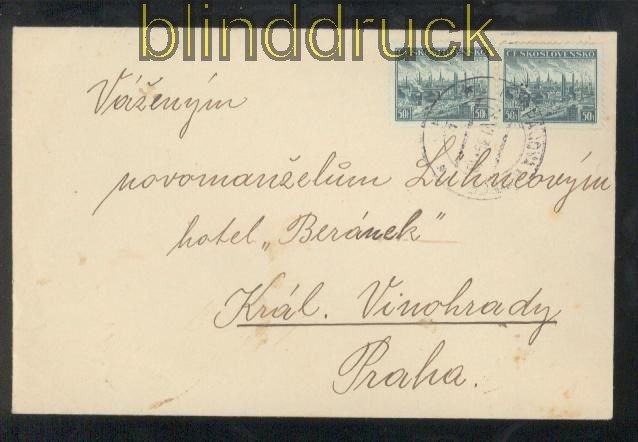 blinddruck
ČESKOSLOVENSKO ČESKOSLOVENSKO
50h 50h 50h 50h
Váženým
novomanželům Luhneovým
hotel „Beránek"
Král. Vinohrady
Praha.